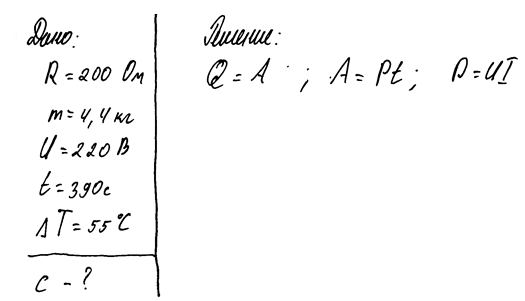 Дано:
R = 200 Ом
m = 4,4 кг
U = 220 В
t = 390 с
ΔT = 55 °C
c - ?
Решение:
Q = A ; A = Pt ; P = UI